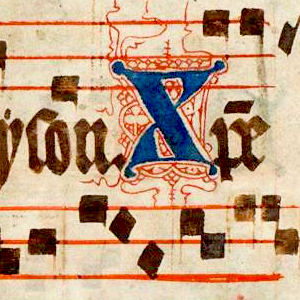 yſon. Xp̄e